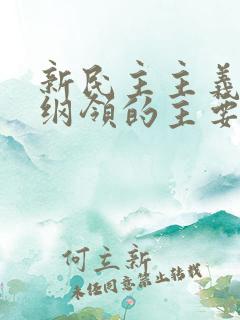 新民主主義
纲领的主要
何立新
未经同意禁止转载